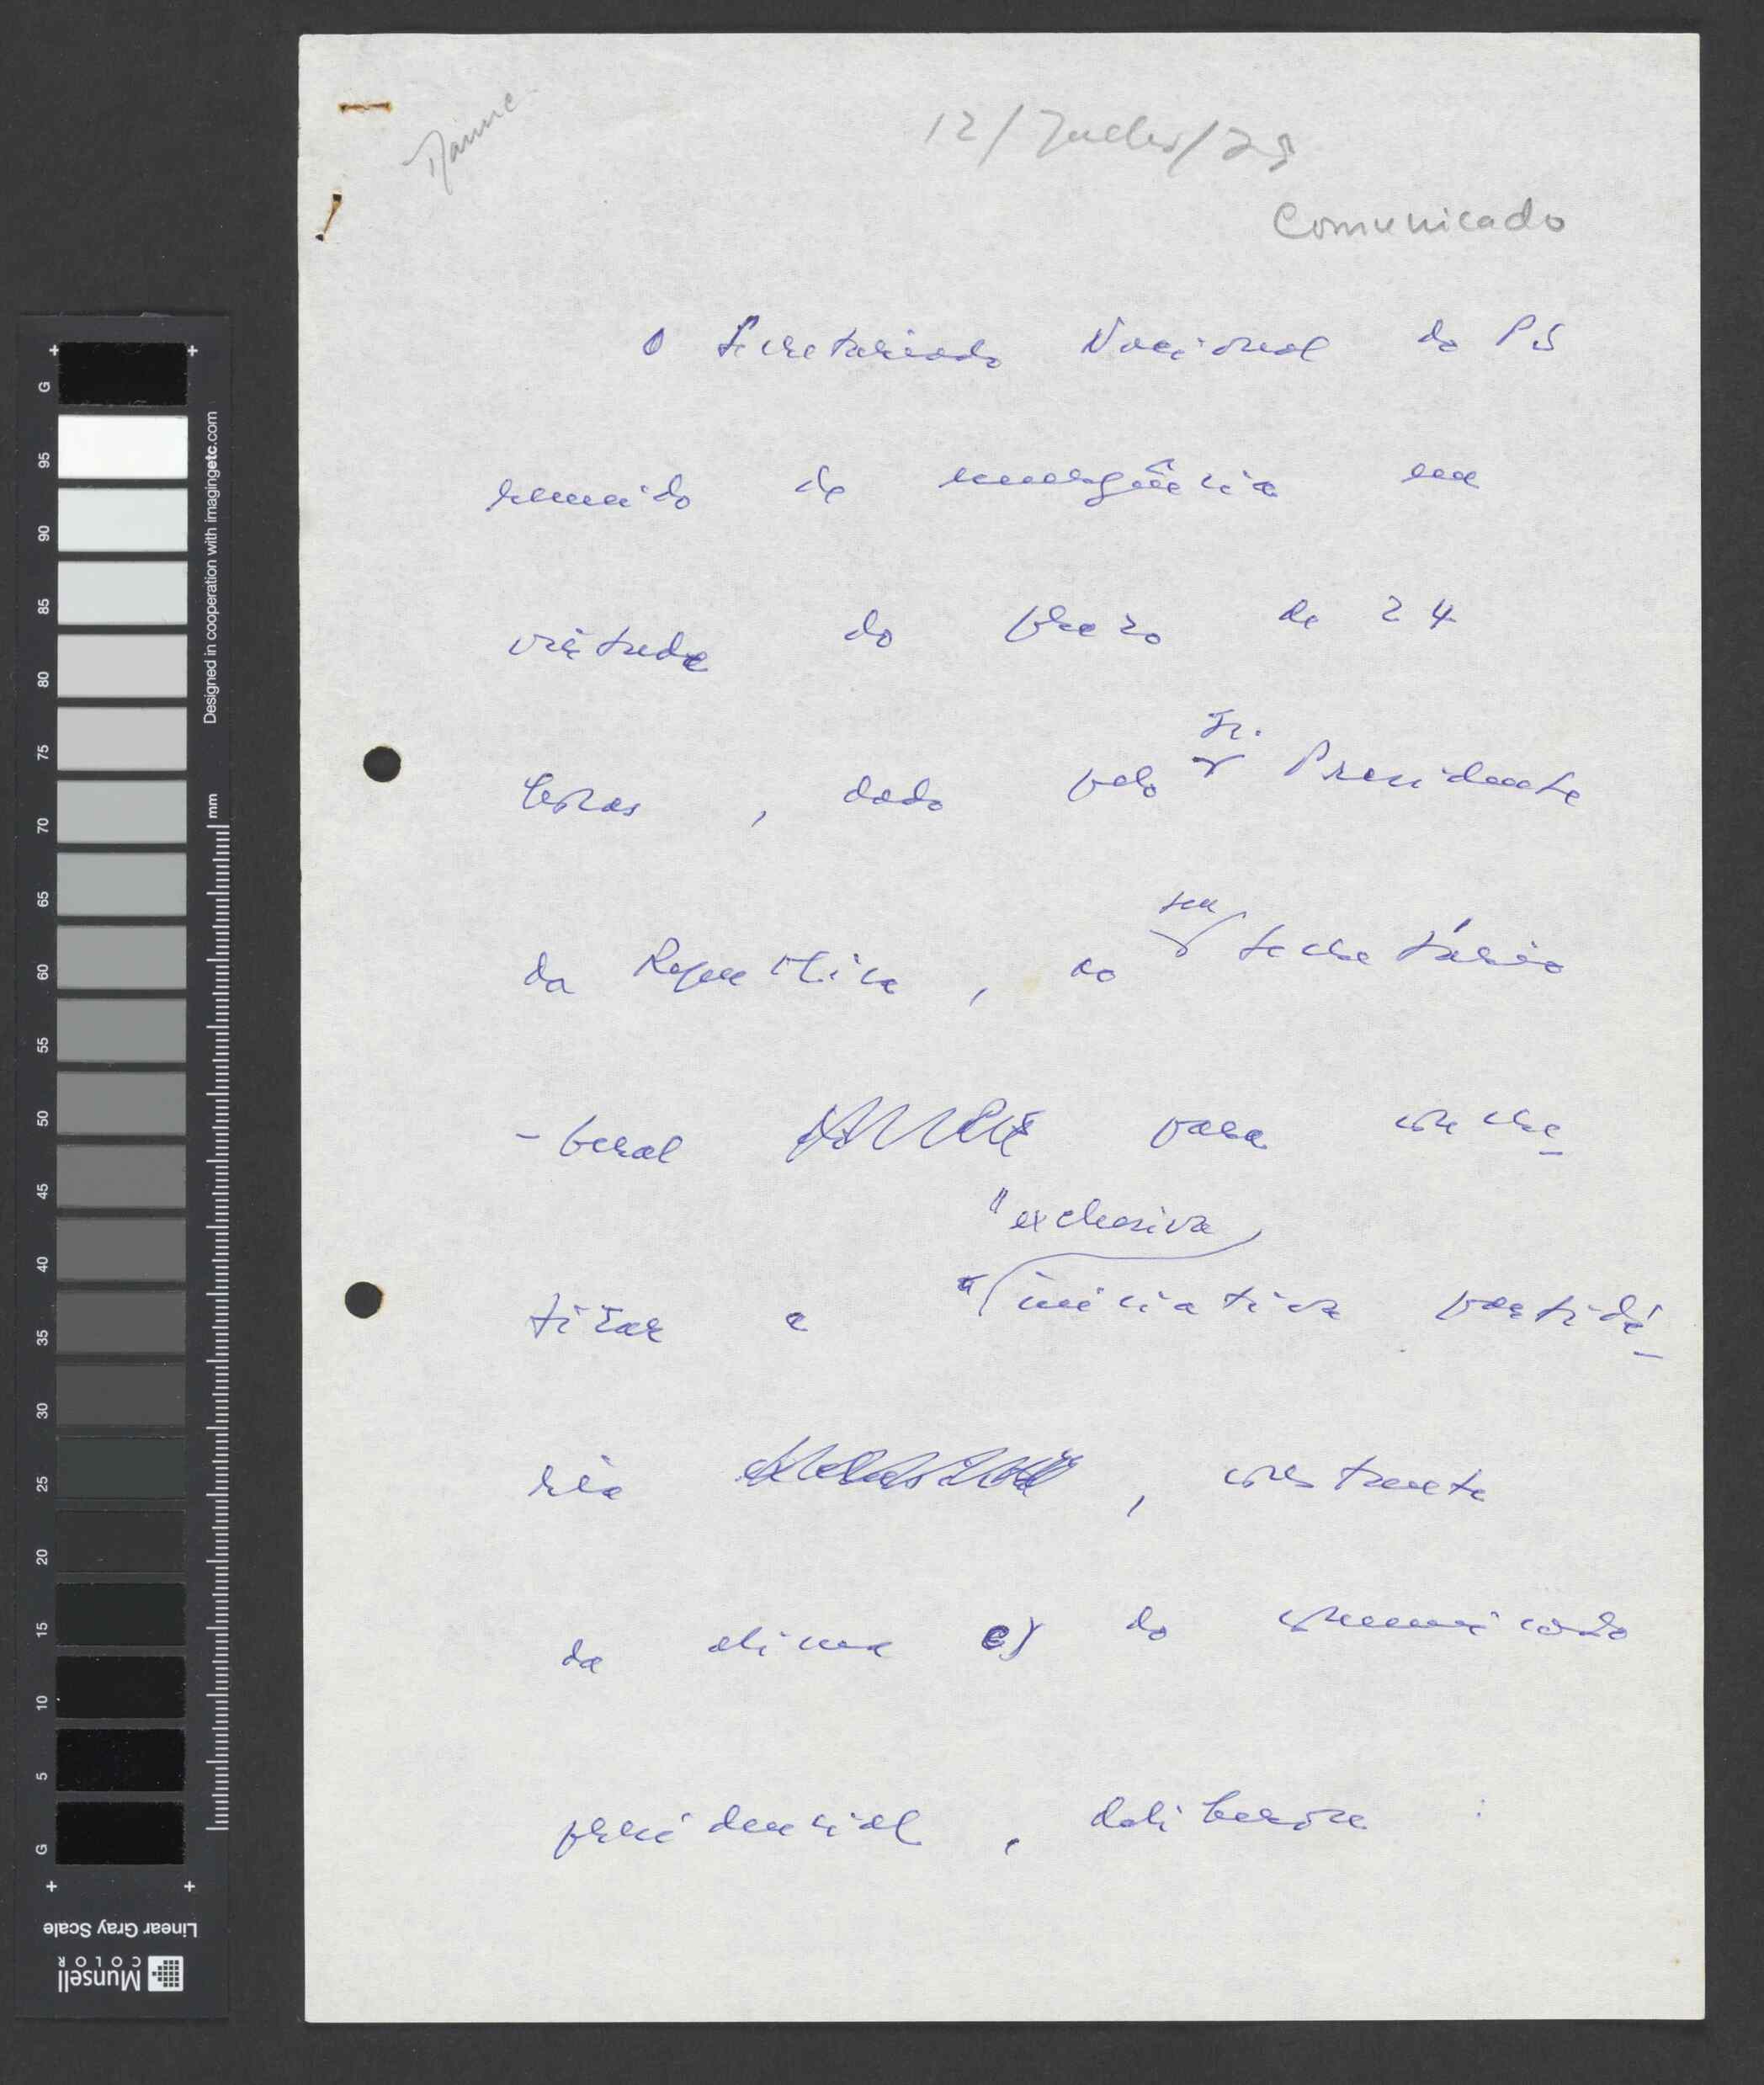 12/Julho/79
Comunicado
O Secretariado Nacional do PS
reunido de emergência em
virtude do prazo de 24
horas, dado pelo Sr. Presidente
da República, ao seu Secretário
-Geral para concre-
tizar a "exclusiva
iniciativa partidá-
ria , constante
da alínea c) do comunicado
presidencial, deliberou :
G
95
90
85
80
75
70
65
60
55
50
45
40
35
30
25
20
15
10
5
G
Designed in cooperation with imagingetc.com
mm
Linear Gray Scale
Munsell
COLOR